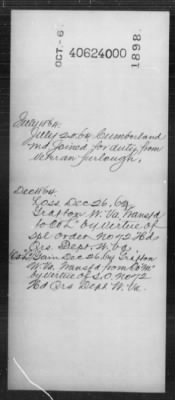 OCT. -6
40624000
1898.
July 1864.
July 20.64 Cumberland
Md Joined for duty from
veteran furlough.
Dec 1864.
Loss Dec 26, 64
Grafton W. Va. Transfd
to Co "L" by virtue of
Spl Order No 72 Hd
Qrs. Dept. W. Va.
Gain Dec 26, 64 Grafton
W. Va. Transfd from Co "M"
by virtue of S.O. No 72
Hd Qrs Dept W. Va.